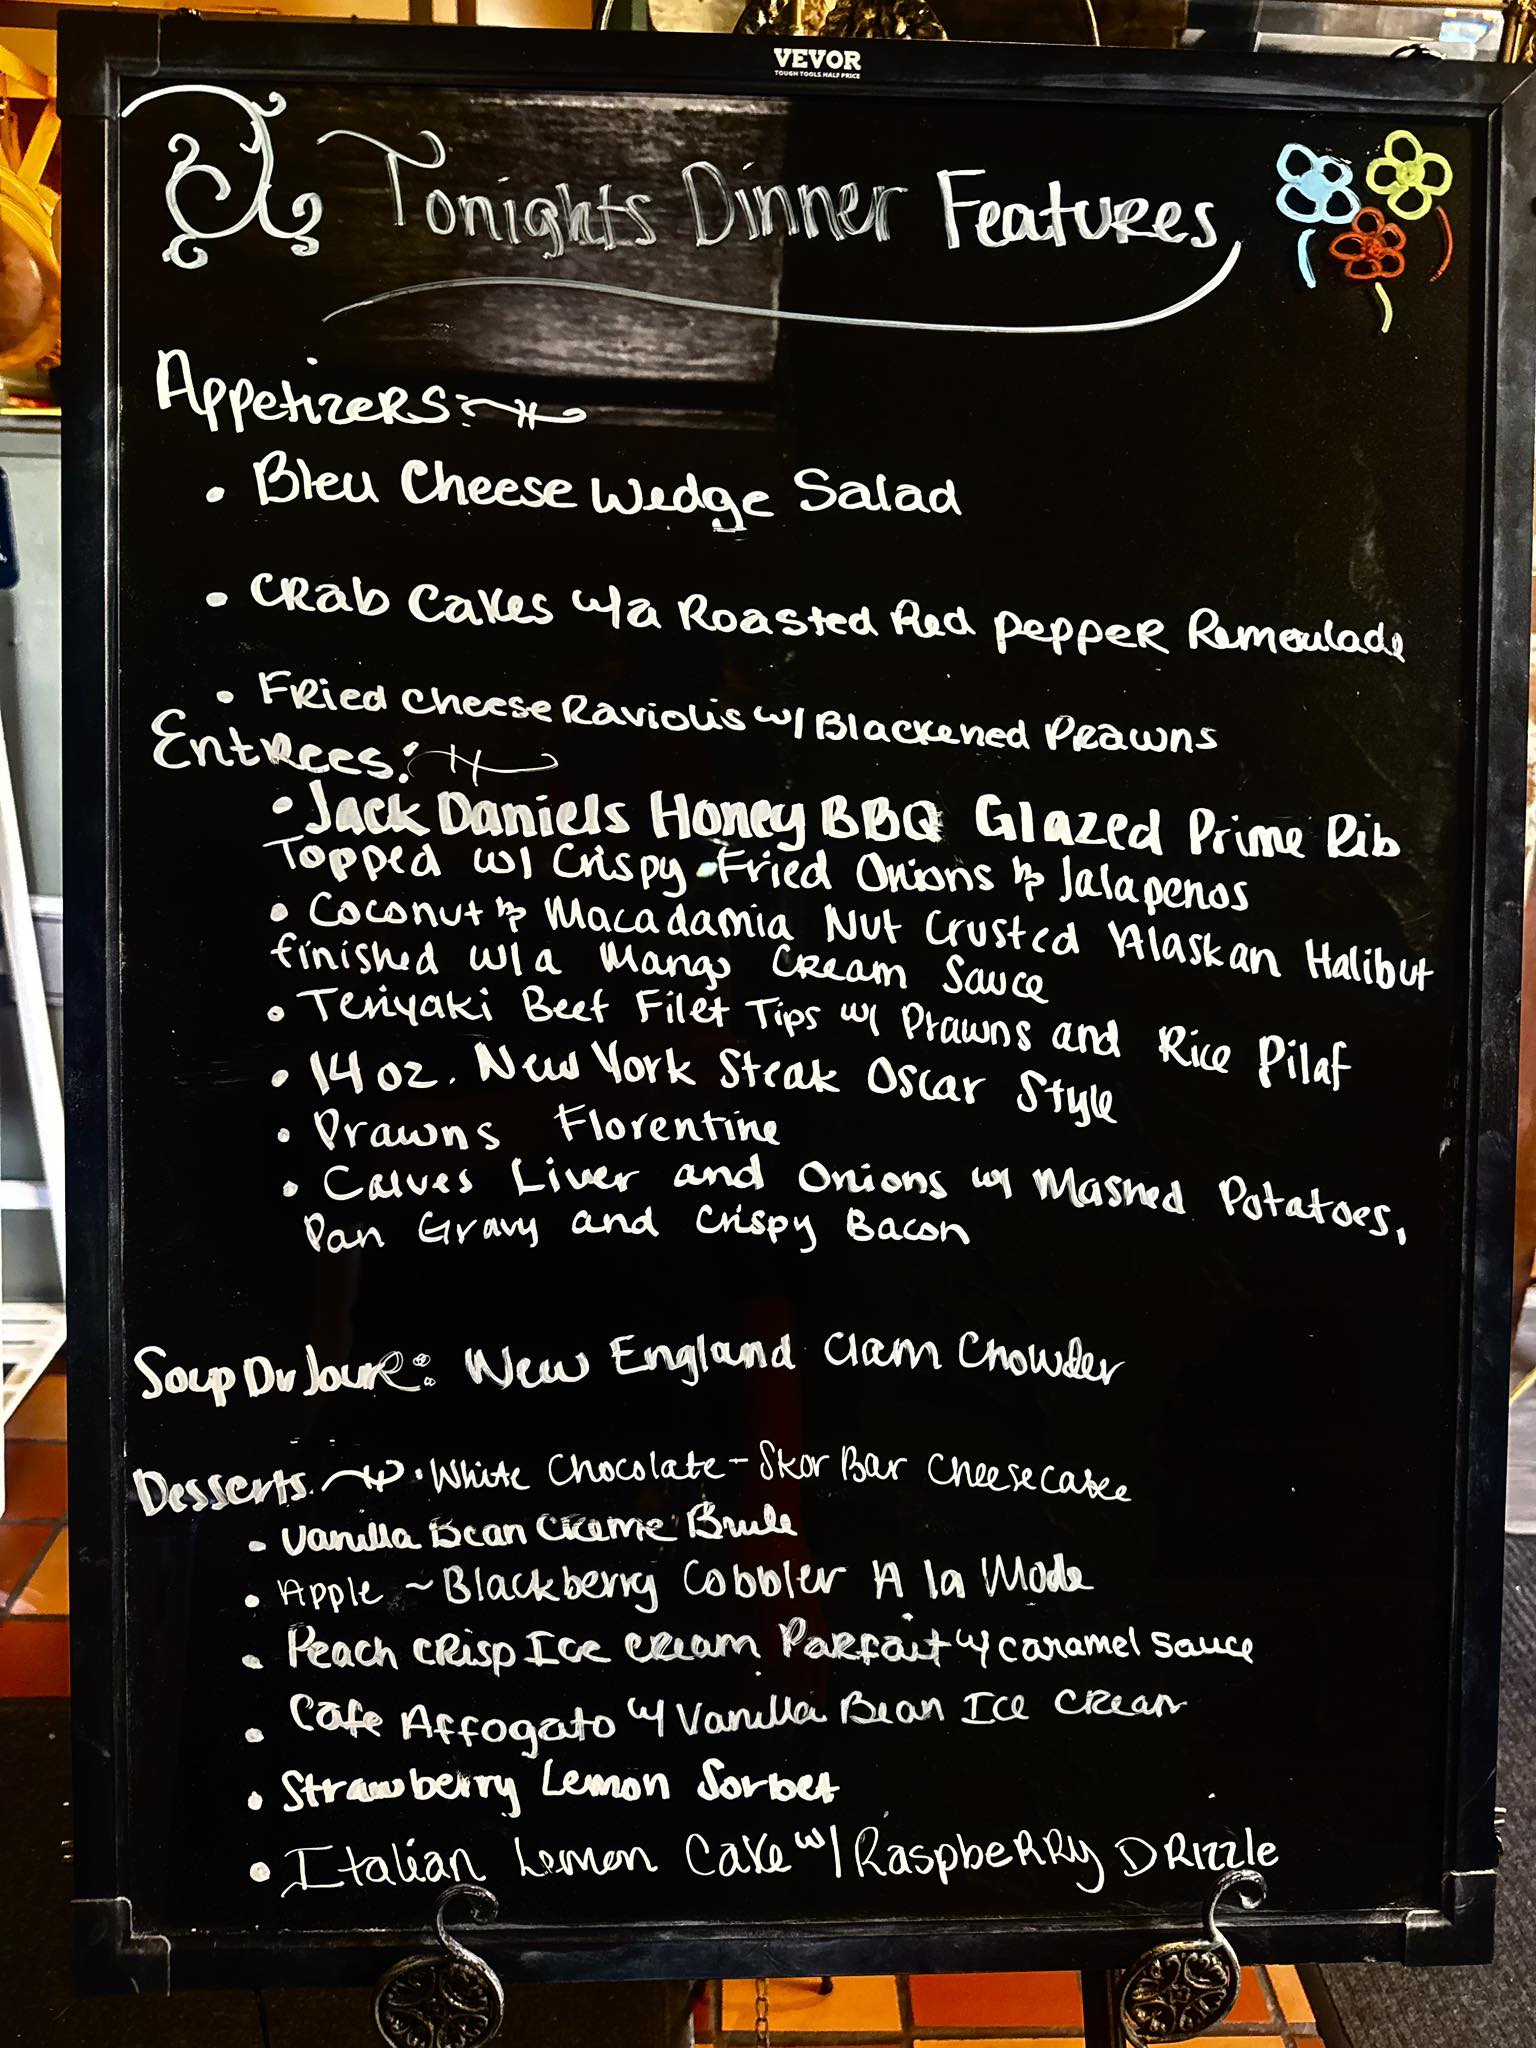 VEVOR
TOUGH TOOLS HALF PRICE
Tonights Dinner Features
Appetizers:
• Bleu Cheese Wedge Salad
• Crab Cakes w/a Roasted Red Pepper Remoulade
• Fried Cheese Raviolis w/ Blackened Prawns
Entrees:
• Jack Daniels Honey BBQ Glazed Prime Rib
Topped w/ Crispy Fried Onions & Jalapenos
• Coconut & Macadamia Nut Crusted Alaskan Halibut
finished w/a Mango Cream Sauce
• Teriyaki Beef Filet Tips w/ Prawns and Rice Pilaf
• 14 oz. New York Steak Oscar Style
• Prawns Florentine
• Calves Liver and Onions w/ Mashed Potatoes,
Pan Gravy and Crispy Bacon
Soup Du Jour: New England Clam Chowder
Desserts • White Chocolate - Skor Bar Cheesecake
• Vanilla Bean Creme Brule
• Apple ~ Blackberry Cobbler A la Mode
• Peach Crisp Ice Cream Parfait w/ Caramel Sauce
• Cafe Affogato w/ Vanilla Bean Ice Cream
• Strawberry Lemon Sorbet
• Italian Lemon Cake w/ Raspberry Drizzle